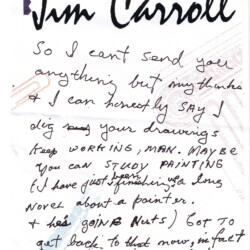 Jim Carroll
So I can't send you
anything but my thanks
& I can honestly SAY I
dig your drawings
Keep WORKING, MAN. MAYBE
you can STUDY PAINTING
(I have just been finishing up a long
NOVEL about a painter.
& he's GOING Nuts) GOT TO
get back to that now, in fact